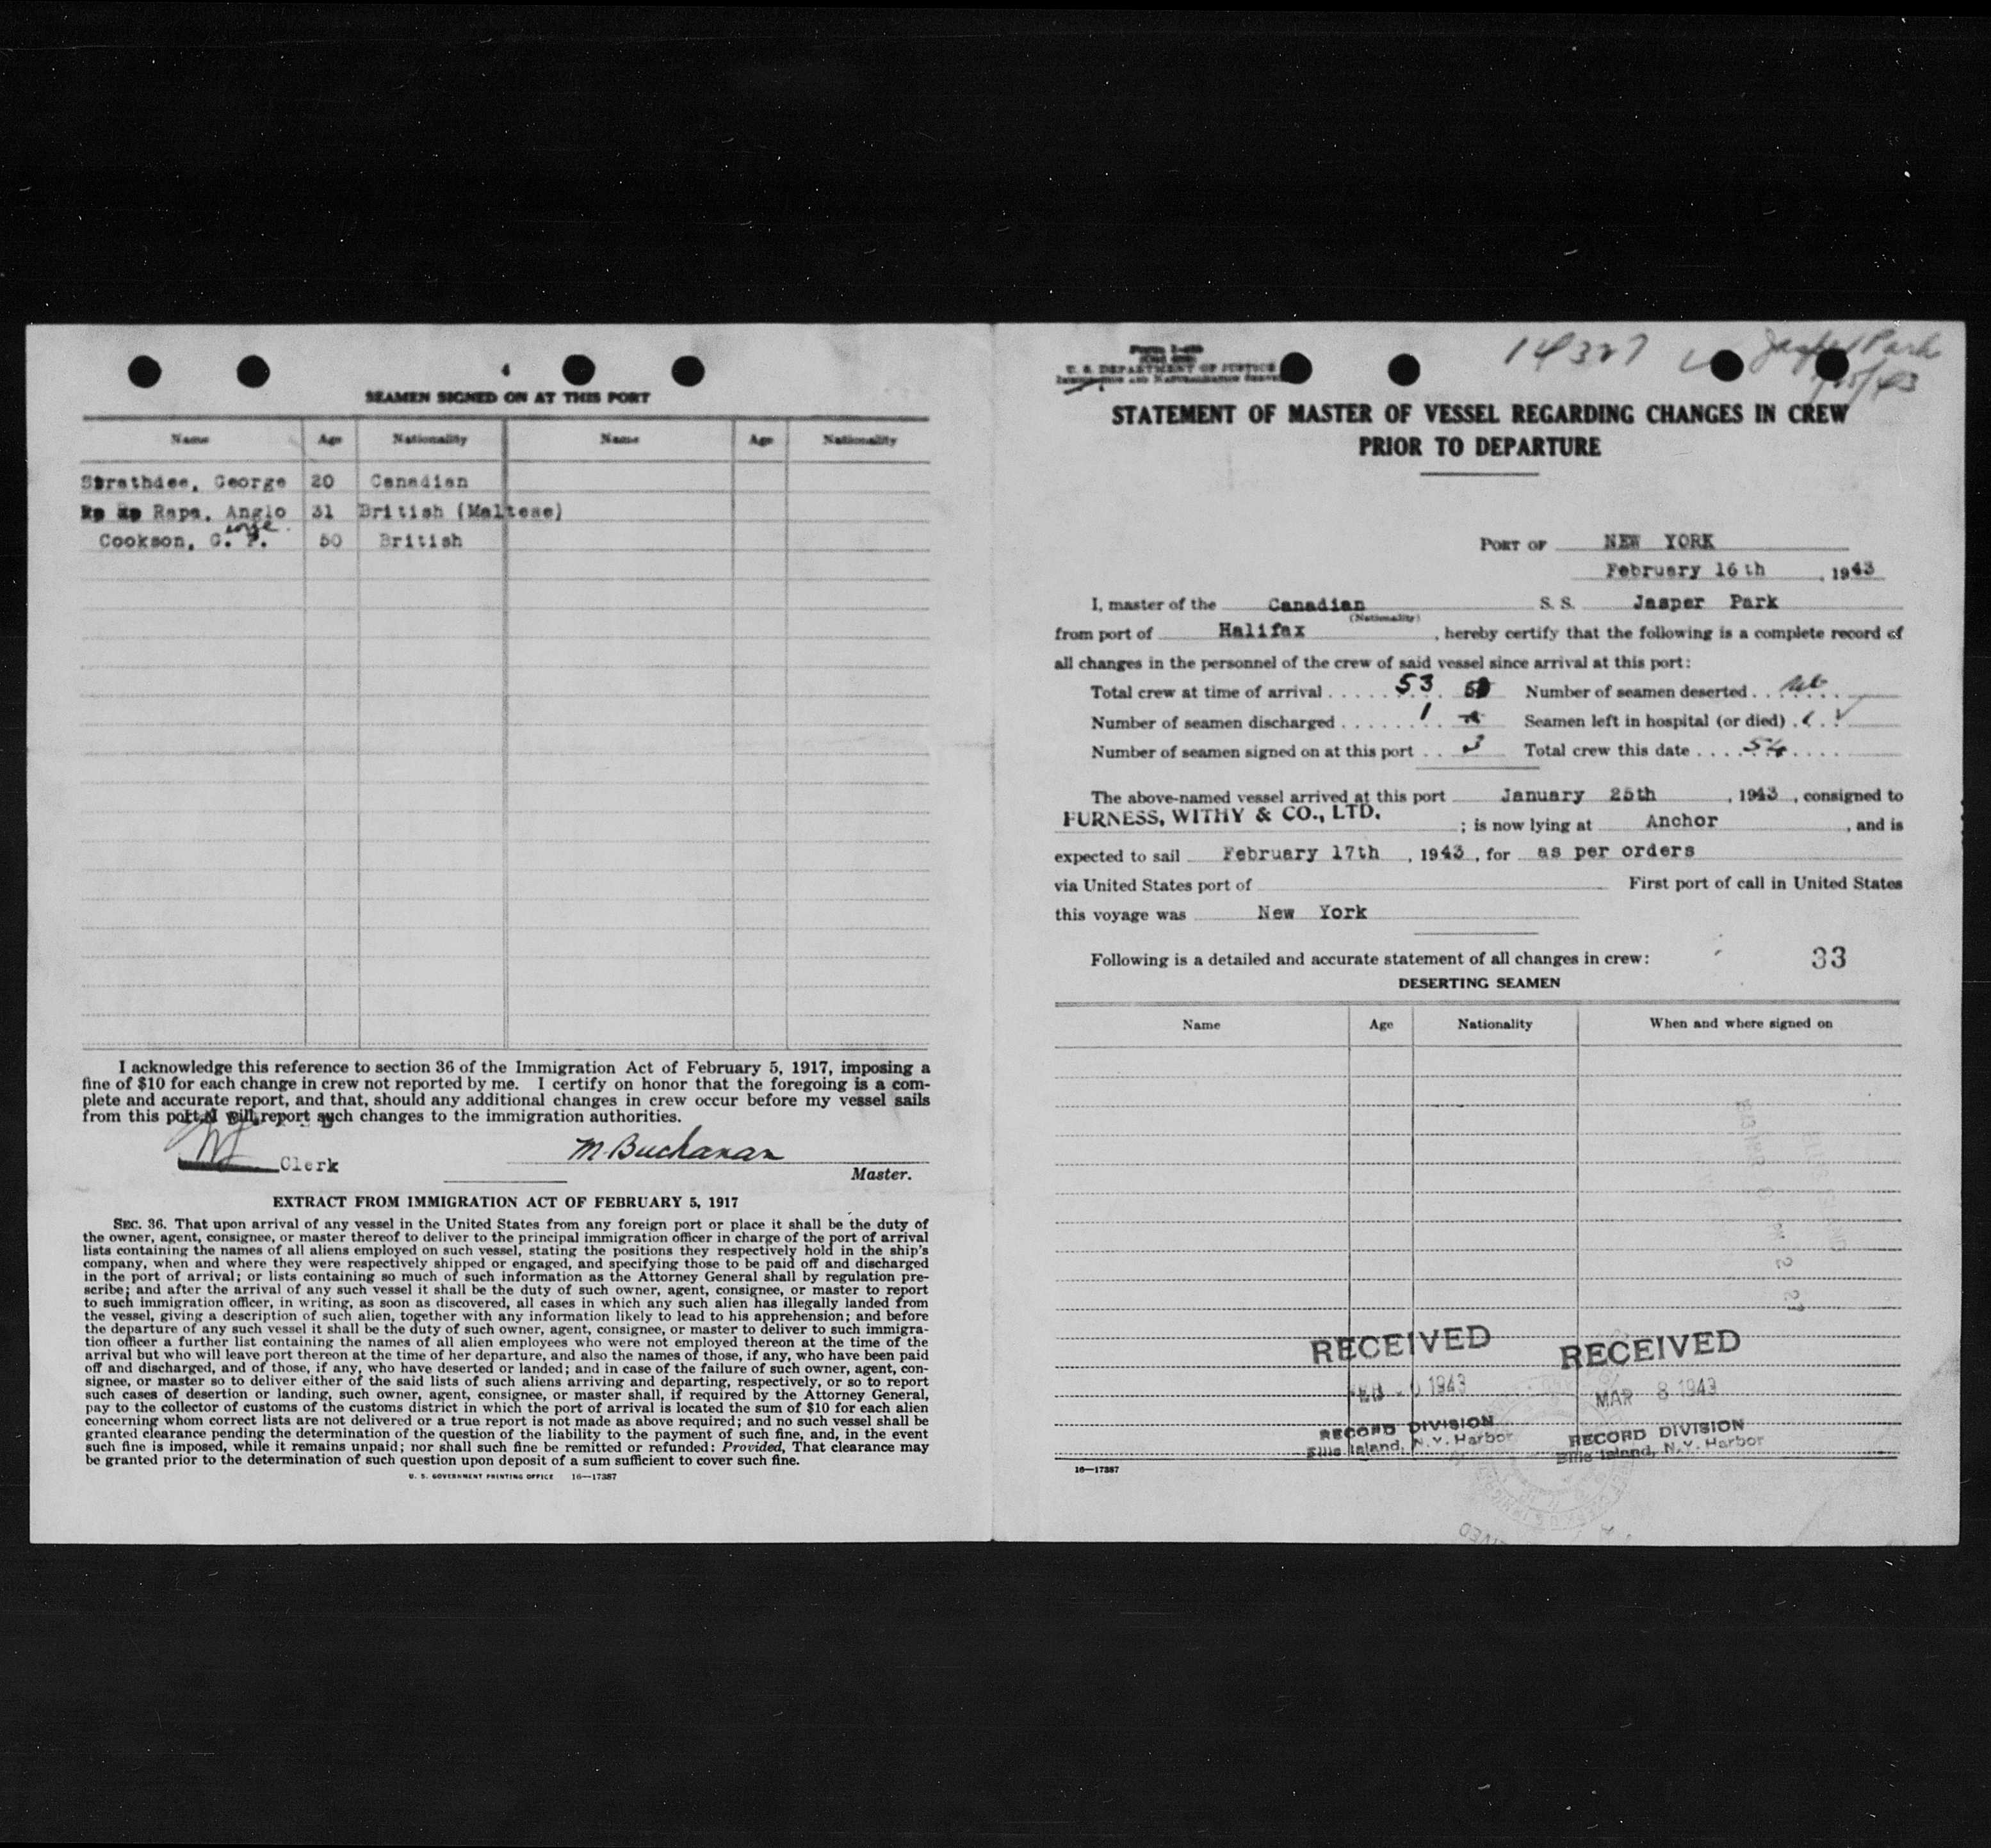 SEAMEN SIGNED ON AT THIS PORT
Name Age Nationality Name Age Nationality
Strathdee, George 20 Canadian
Rapa, Anglo 31 British (Maltese)
Cookson, G. P. 50 British
I acknowledge this reference to section 36 of the Immigration Act of February 5, 1917, imposing a
fine of $10 for each change in crew not reported by me. I certify on honor that the foregoing is a com-
plete and accurate report, and that, should any additional changes in crew occur before my vessel sails
from this port, I will report such changes to the immigration authorities.
Clerk M. Buchanan
Master.
EXTRACT FROM IMMIGRATION ACT OF FEBRUARY 5, 1917
SEC. 36. That upon arrival of any vessel in the United States from any foreign port or place it shall be the duty of
the owner, agent, consignee, or master thereof to deliver to the principal immigration officer in charge of the port of arrival
lists containing the names of all aliens employed on such vessel, stating the positions they respectively hold in the ship's
company, when and where they were respectively shipped or engaged, and specifying those to be paid off and discharged
in the port of arrival; or lists containing so much of such information as the Attorney General shall by regulation pre-
scribe; and after the arrival of any such vessel it shall be the duty of such owner, agent, consignee, or master to report
to such immigration officer, in writing, as soon as discovered, all cases in which any such alien has illegally landed from
the vessel, giving a description of such alien, together with any information likely to lead to his apprehension; and before
the departure of any such vessel it shall be the duty of such owner, agent, consignee, or master to deliver to such immigra-
tion officer a further list containing the names of all alien employees who were not employed thereon at the time of the
arrival but who will leave port thereon at the time of her departure, and also the names of those, if any, who have been paid
off and discharged, and of those, if any, who have deserted or landed; and in case of the failure of such owner, agent, con-
signee, or master so to deliver either of the said lists of such aliens arriving and departing, respectively, or so to report
such cases of desertion or landing, such owner, agent, consignee, or master shall, if required by the Attorney General,
pay to the collector of customs of the customs district in which the port of arrival is located the sum of $10 for each alien
concerning whom correct lists are not delivered or a true report is not made as above required; and no such vessel shall be
granted clearance pending the determination of the question of the liability to the payment of such fine, and, in the event
such fine is imposed, while it remains unpaid; nor shall such fine be remitted or refunded: Provided, That clearance may
be granted prior to the determination of such question upon deposit of a sum sufficient to cover such fine.
U. S. GOVERNMENT PRINTING OFFICE 16—17387
14327 Jasper Park
U. S. DEPARTMENT OF JUSTICE
IMMIGRATION AND NATURALIZATION SERVICE
STATEMENT OF MASTER OF VESSEL REGARDING CHANGES IN CREW
PRIOR TO DEPARTURE
PORT OF NEW YORK
February 16th, 1943
I, master of the Canadian S. S. Jasper Park
(Nationality)
from port of Halifax, hereby certify that the following is a complete record of
all changes in the personnel of the crew of said vessel since arrival at this port:
Total crew at time of arrival 53 Number of seamen deserted
Number of seamen discharged 1 Seamen left in hospital (or died) 1
Number of seamen signed on at this port 3 Total crew this date 54
The above-named vessel arrived at this port January 25th, 1943, consigned to
FURNESS, WITHY & CO., LTD. ; is now lying at Anchor, and is
expected to sail February 17th, 1943, for as per orders
via United States port of First port of call in United States
this voyage was New York
Following is a detailed and accurate statement of all changes in crew: 33
DESERTING SEAMEN
Name Age Nationality When and where signed on
RECEIVED RECEIVED
1943 MAR 8 1943
RECORD DIVISION RECORD DIVISION
Ellis Island, N.Y. Harbor Ellis Island, N.Y. Harbor
16—17387